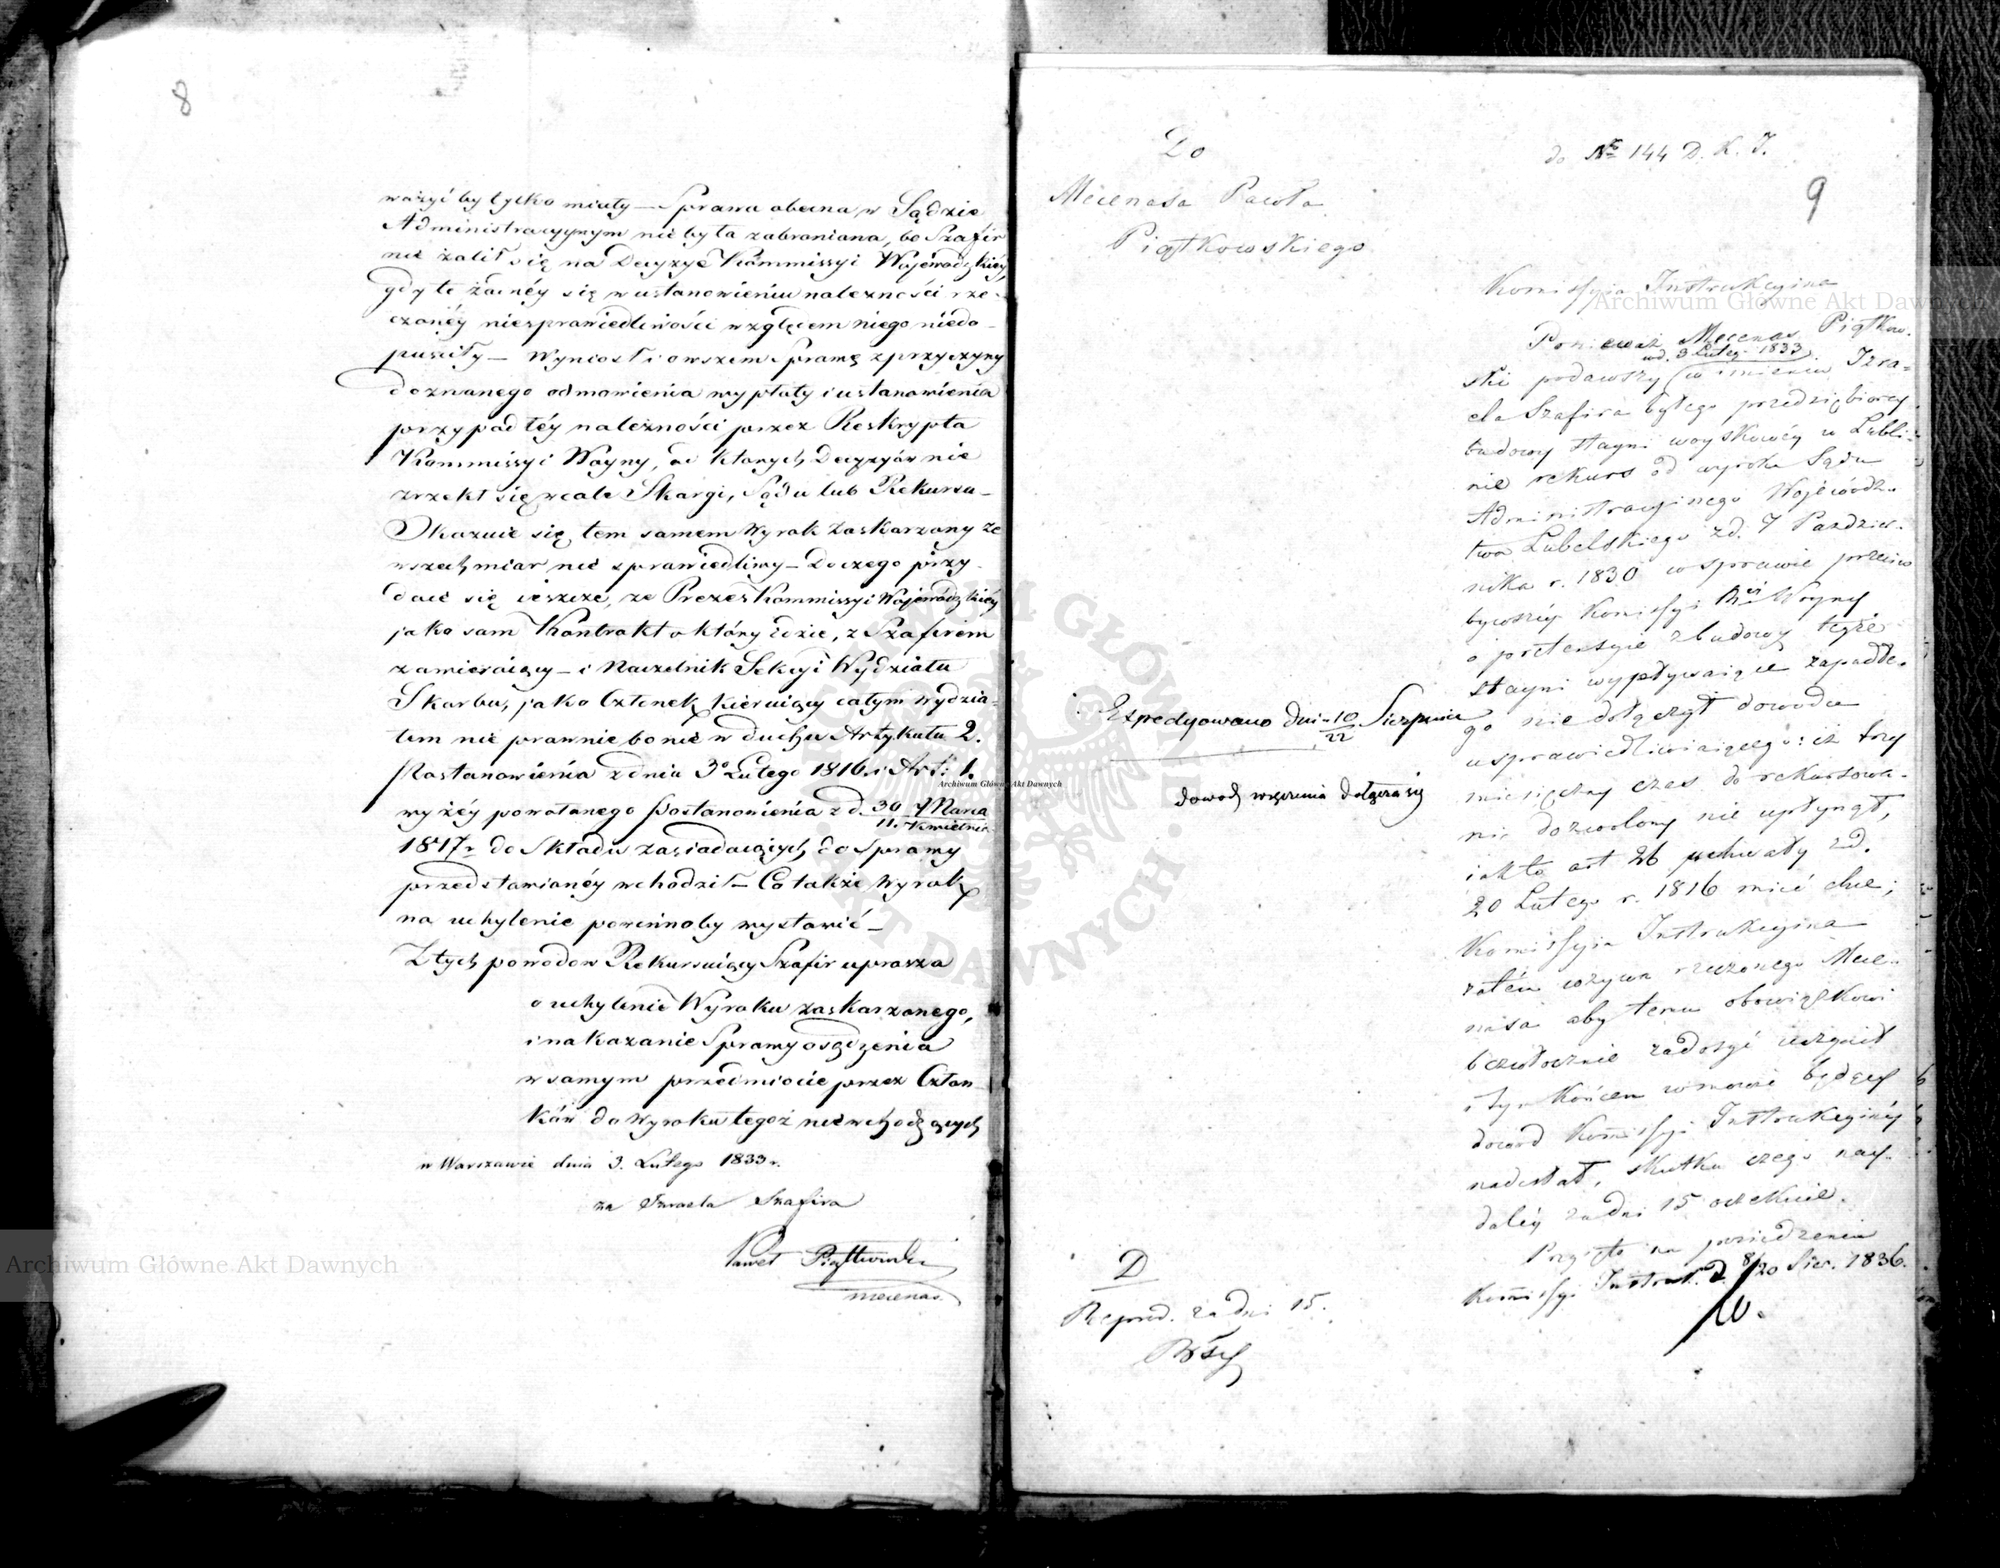 8
ważyć by tylko miały – Sprawa obecna w Sądzie
Administracyjnym nie była zabraniana, bo Szafir
nie żalił się na Decyzye Kommissyi Wojewódzkiéy,
gdy te żadnéy się w ustanowieniu należności rze-
czonéy niesprawiedliwości względem niego niedo-
puściły – Wyniosł i owszem Sprawę z przyczyny
doznanego odmowienia wypłaty i ustanowienia
przypadłéy należności przez Reskrypta
Kommissyi Woyny, od ktorych Decyzyów nie
zrzekł się wcale Skargi, Sądu lub Rekursu –
Okazuie się tem samem Wyrok zaskarzony ze
wszech miar nie sprawiedliwy – Do czego przy-
daie się ieszcze, ze Prezes Kommissyi Wojewódzkiéy
jako sam Kontrakt o który idzie, z Szafirem
zawieraiący – i Naczelnik Sekcyi Wydziału
Skarbu, jako Członek kieruiący całym Wydzia-
łem nie prawnie bo nie w duchu Artykułu 2.
Postanowienia z dnia 3º Lutego 1816. i Art: 1.
wyżéy powołanego Postanowienia z d. 30 Marca
11. Kwietnia
1817 r. do Składu zasiadaiących do Sprawy
przedstawianéy wchodził – Co także Wyrok
na uchylenie powinnoby wystawić –
Z tych powodow Rekursuiący Szafir uprasza
o uchylenie Wyroku zaskarzonego,
i nakazanie Sprawy osądzenia
w samym przedmiocie przez Człon-
ków do Wyroku tegoż nie wchodzących
w Warszawie dnia 3. Lutego 1833 r.
za Izraela Szafira
Paweł Piątkowski
mecenas.
Do
Mecenasa Pawła
Piątkowskiego
do № 144 D. K. I.
9
Komissyia Instrukcyina
Ponieważ Mecenas Piątkow-
ski podawszy (w imieniu Izra-
wd. 3 Lutego 1833
ela Szafira byłego przedsiębiorcy
budowy stayni woyskowéy w Lubli-
nie rekurs od wyroku Sądu
Administracyinego Wojewódz-
twa Lubelskiego z d. 7 Paździer-
nika r. 1830 w sprawie przeciw
bywszéy Komissyi Woyny
o pretensyie z budowy teyże
stayni wypływaiące zapadłe-
go nie dołączył dowodu
usprawiedliwiaiącego: iż trzy
miesięczny czas do rekursowa-
nia dozwolony nie upłynął,
iak to art 26 uchwały z d.
20 Lutego r. 1816 mieć chce;
Komissyia Instrukcyina
zatém wzywa rzeczonego Mece-
nasa aby temu obowiązkowi
bezwłocznie zadosyć uczynił
i tym końcem w mowie będący
dowód Komissyi Instrukcyinéy
nadesłał, skutku czego nay-
daléy za dni 15 oczekuie.
Przyięto na posiedzeniu
Komissyi Instruk. d. 8/20 Sier. 1836.
Expedyowano dnia 10 Sierpnia
22
dowod wręczenia dołącza się
D
Reprod. za dni 15.
Archiwum Główne Akt Dawnych
Archiwum Główne Akt Dawnych
Archiwum Główne Akt Dawnych